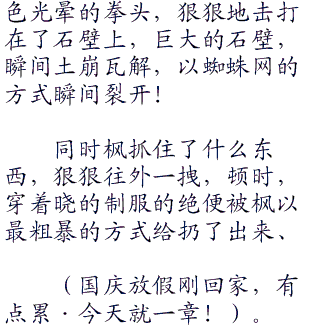 色光晕的拳头，狠狠地击打
在了石壁上，巨大的石壁，
瞬间土崩瓦解，以蜘蛛网的
方式瞬间裂开！
同时枫抓住了什么东
西，狠狠往外一拽，顿时，
穿着晓的制服的绝便被枫以
最粗暴的方式给扔了出来、
（国庆放假刚回家，有
点累·今天就一章！）。